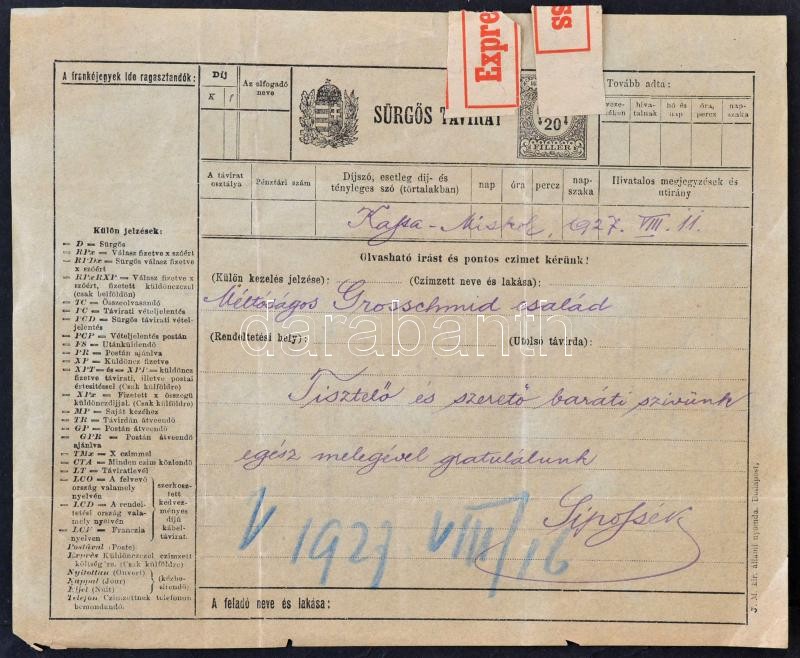 Expre
ss
A frankójegyek ide ragasztandók:
Díj
K f
Az elfogadó neve
SÜRGŐS TÁVIRAT
20
FILLÉR
Tovább adta:
hiva-talnak
hó és nap
óra, percz
nap-szaka
A távirat osztálya
Pénztári szám
Díjszó, esetleg dij- és tényleges szó (törtalakban)
nap
óra
percz
nap-szaka
Hivatalos megjegyzések és utirány
Kassa - 1927. VIII. 11.
Olvasható irást és pontos czimet kérünk!
(Külön kezelés jelzése):
(Czimzett neve és lakása):
Méltóságos Grosschmid család
darabanth
(Rendeltetési hely):
(Utolsó távirda):
Tisztelő és szerető baráti szivünk
egész melegével gratulálunk
Siposék
V 1927 VIII/16
A feladó neve és lakása:
Külön jelzések:
— D — Sürgős
— RPx — Válasz fizetve x szóért
— RPDx — Sürgős válasz fizetve x szóért
— RPxRXP — Válasz fizetve x szóért, fizetett küldönczczel (csak belföldön)
— TC — Összeolvasandó
— PC — Távirati vételjelentés
— PCD — Sürgős távirati vétel-jelentés
— PCP — Vételjelentés postán
— FS — Utánküldendő
— PR — Postán ajánlva
— XP — Küldöncz fizetve
— XPT — és — XPP — küldöncz fizetve távirati, illetve postai értesítéssel (Csak külföldre)
— XPx — Fizetett x összegű küldönczdíjjal. (Csak külföldre)
— MP — Saját kezéhez
— TR — Távirdán átveendő
— GP — Postán átveendő
— GPR — Postán átveendő ajánlva
— TMx — X czimmel
— CTA — Minden czim közlendő
— LT — Táviratlevél
— LCO — A felvevő ország valamely nyelvén
— LCD — A rendeltetési ország valamely nyelvén
— LCF — Franczia nyelven
szerkosztett kedvezményes díjú kábeltávirat.
Postával (Poste)
Exprès Küldönczczel czimzett költségére. (Csak külföldre)
Nyitottan (Ouvert)
Nappal (Jour)
Éjjel (Nuit)
(kézbesítendő)
Telefon Czimzettnek telefonon bemondandó.
J. M. kir. állami nyomda. Budapest,